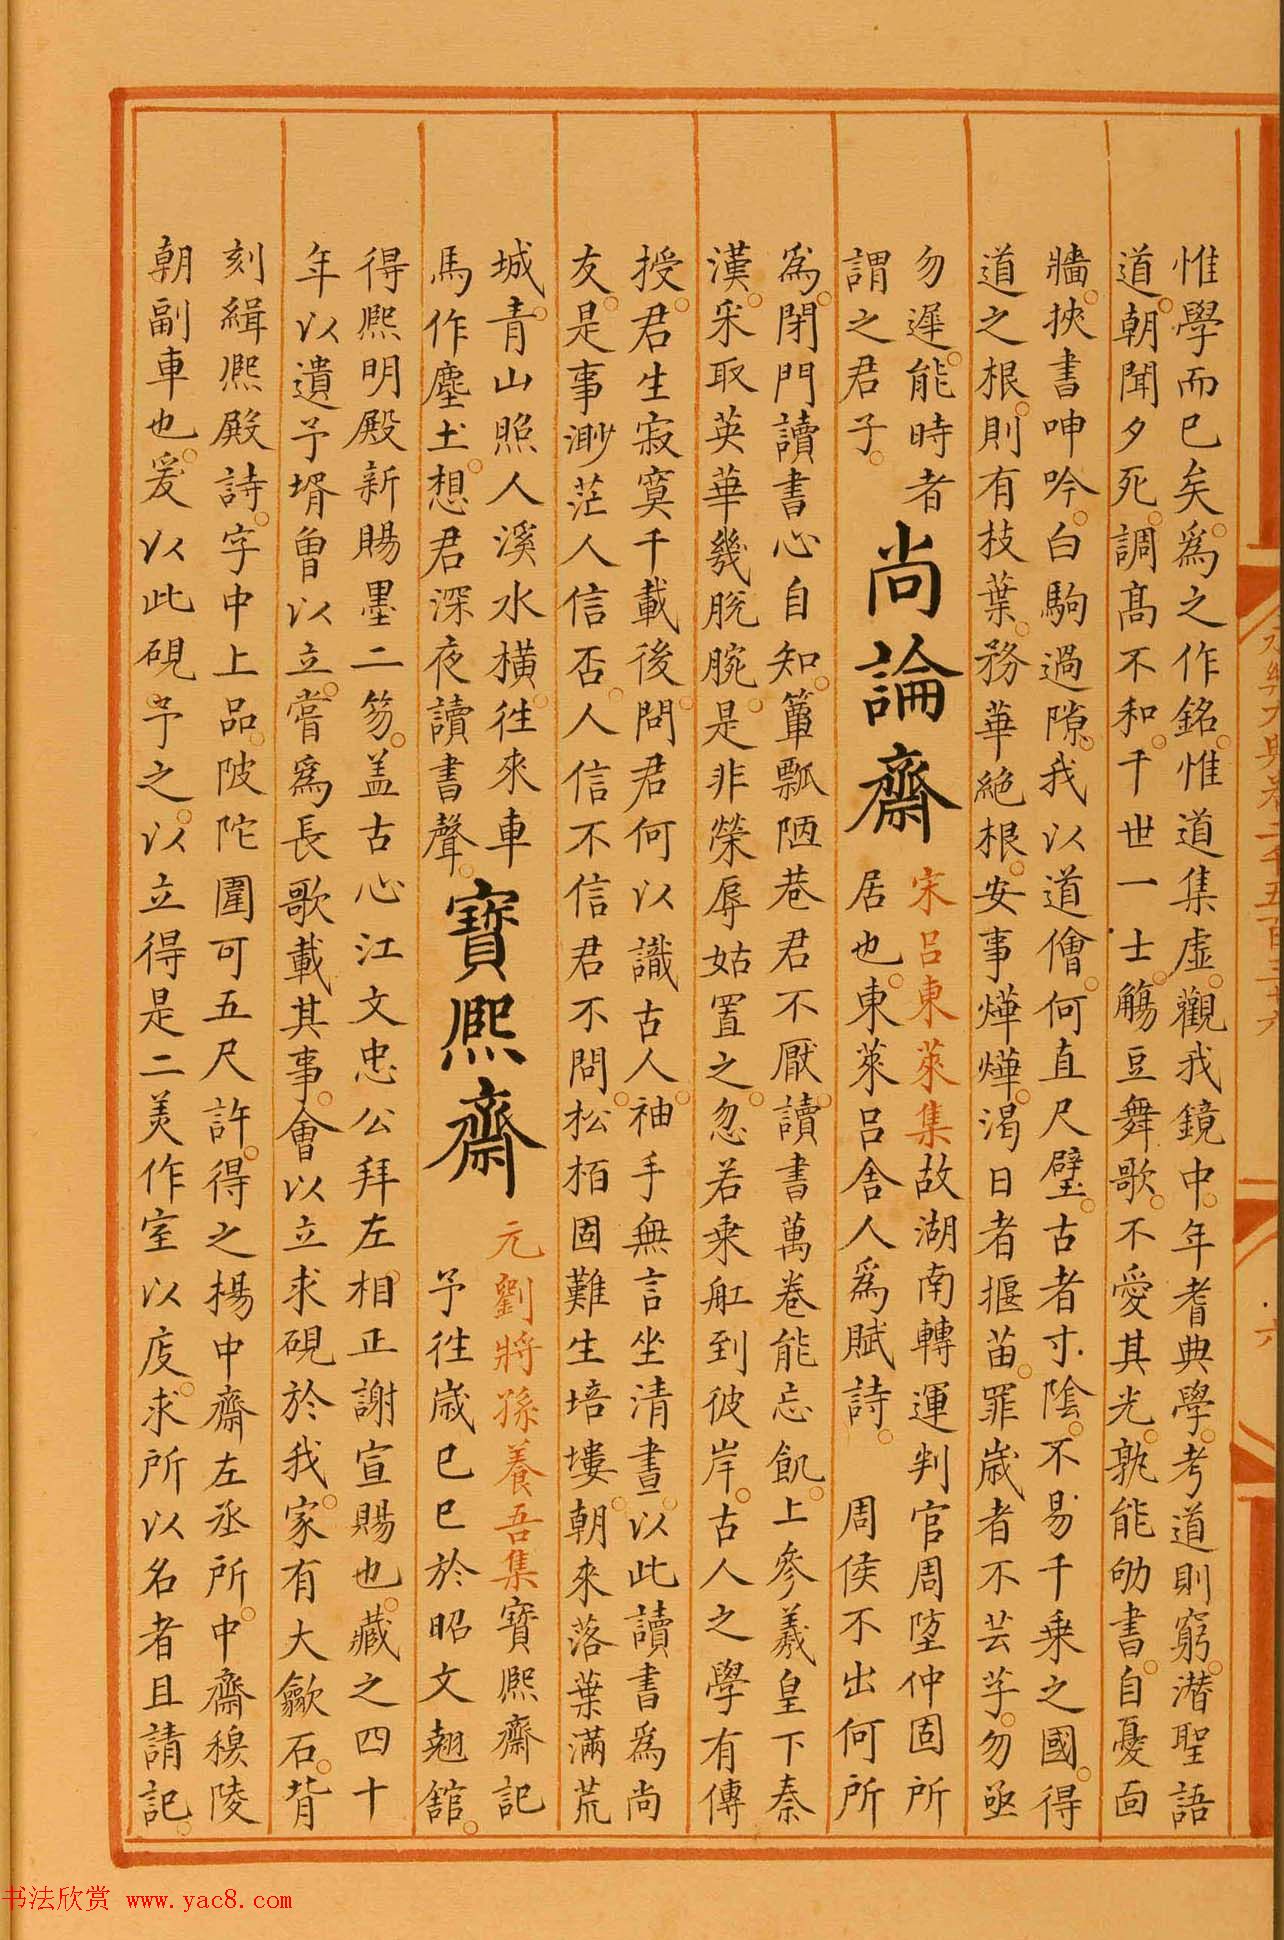 惟學而已矣爲之作銘惟道集虛觀我鏡中年耆典學考道則窮潛聖語
道朝聞夕死調高不和千世一士觴豆舞歌不愛其光孰能劬書自憂面
牆挾書呻吟白駒過隙我以道儈何直尺璧古者寸陰不易千乘之國得
道之根則有枝葉務華絶根安事燁燁渴日者揠苗罪歲者不芸芓勿亟
勿遲能時者
謂之君子
尚論齋
宋呂東萊集故湖南轉運判官周堕仲固所
居也東萊呂舍人爲賦詩 周侯不出何所
爲閉門讀書心自知簞瓢陋巷君不厭讀書萬卷能忘飢上參羲皇下秦
漢采取英華幾脫腕是非榮辱姑置之忽若乗舡到彼岸古人之學有傳
授君生寂寞千載後問君何以識古人袖手無言坐清晝以此讀書爲尚
友是事渺茫人信否人信不信君不問松栢固難生培塿朝來落葉滿荒
城青山照人溪水橫徃來車
馬作塵土想君深夜讀書聲
寶熈齋
元劉將孫養吾集寶熈齋記
予徃歲已巳於昭文翹舘
得熈明殿新賜墨二笏盖古心江文忠公拜左相正謝宣賜也藏之四十
年以遺予壻曾以立嘗爲長歌載其事會以立求硯於我家有大歙石背
刻緝熈殿詩字中上品陂陀圍可五尺許得之楊中齋左丞所中齋穆陵
朝副車也爰以此硯予之以立得是二美作室以庋求所以名者且請記
永樂大典卷二千五百三十九
六
书法欣赏 www.yac8.com